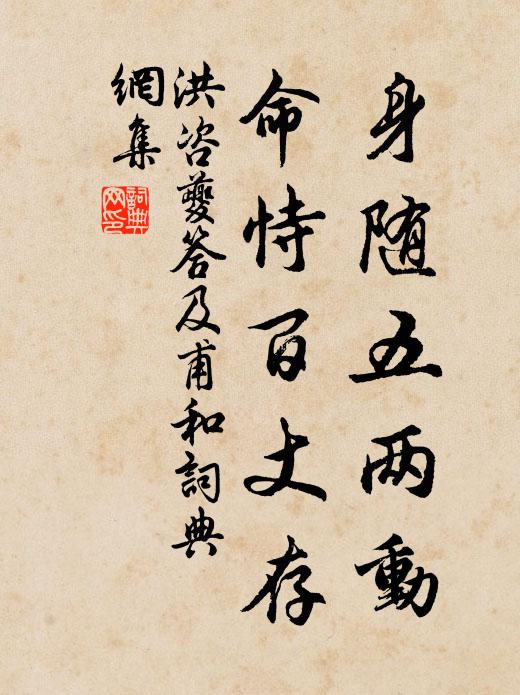 身随五两動
命恃百丈存
洪咨夔答及甫和詞典
網集
詞典
网印